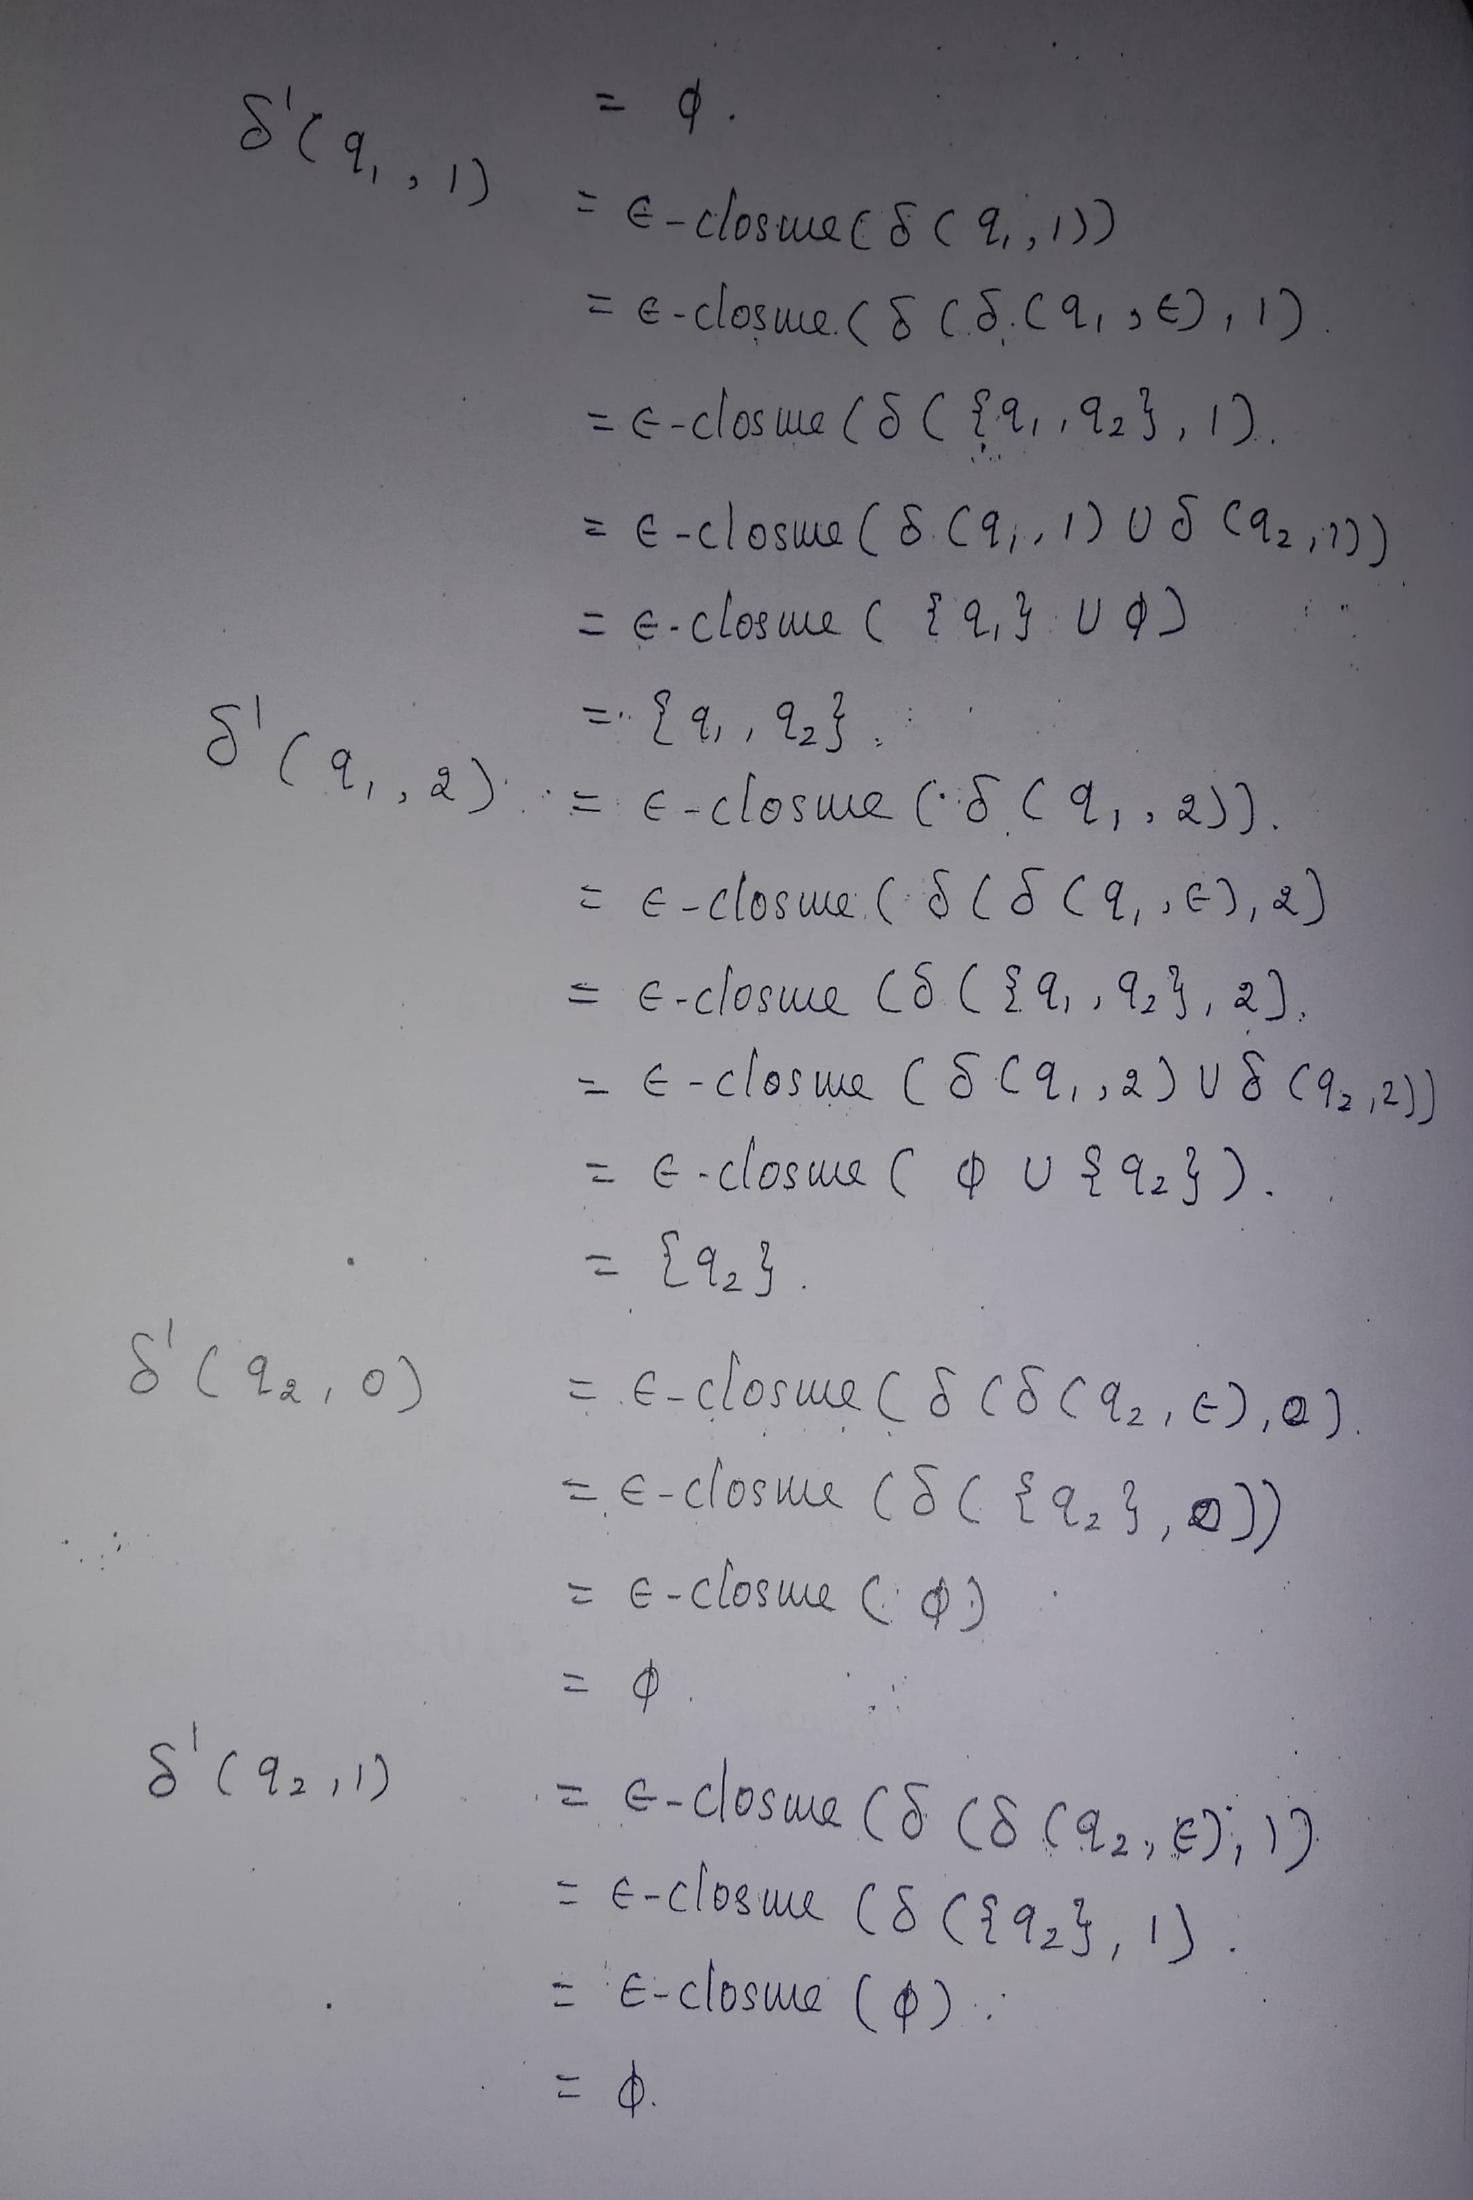 = ϕ.
δ'(q₁, 1) = ϵ-closure(δ(q₁, 1))
= ϵ-closure(δ(δ(q₁, ϵ), 1).
= ϵ-closure(δ({q₁, q₂}, 1).
= ϵ-closure(δ(q₁, 1) ∪ δ(q₂, 1))
= ϵ-closure({q₁} ∪ ϕ)
= {q₁, q₂}.
δ'(q₁, 2) = ϵ-closure(δ(q₁, 2)).
= ϵ-closure(δ(δ(q₁, ϵ), 2)
= ϵ-closure(δ({q₁, q₂}, 2).
= ϵ-closure(δ(q₁, 2) ∪ δ(q₂, 2))
= ϵ-closure(ϕ ∪ {q₂}).
= {q₂}.
δ'(q₂, 0) = ϵ-closure(δ(δ(q₂, ϵ), 0).
= ϵ-closure(δ({q₂}, 0))
= ϵ-closure(ϕ)
= ϕ.
δ'(q₂, 1) = ϵ-closure(δ(δ(q₂, ϵ), 1)
= ϵ-closure(δ({q₂}, 1).
= ϵ-closure(ϕ).
= ϕ.